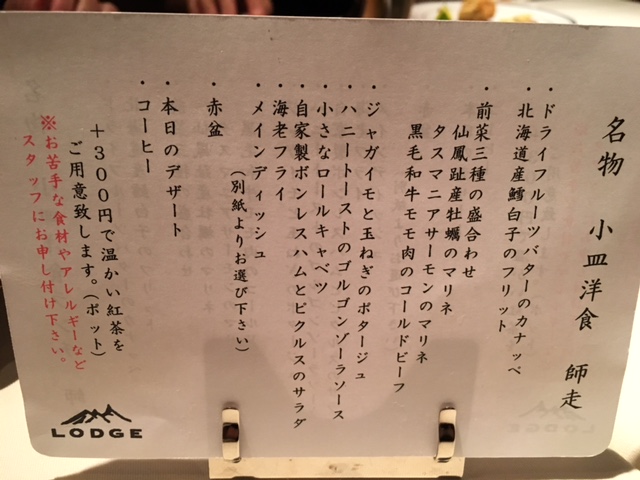 名物 小皿洋食 師走
・ドライフルーツバターのカナッペ
・北海道産鱈白子のフリット
・前菜三種の盛合わせ
仙鳳趾産牡蠣のマリネ
タスマニアサーモンのマリネ
黒毛和牛モモ肉のコールドビーフ
・ジャガイモと玉ねぎのポタージュ
・ハニートーストのゴルゴンゾーラソース
・小さなロールキャベツ
・自家製ボンレスハムとピクルスのサラダ
・海老フライ
・メインディッシュ
(別紙よりお選び下さい)
・赤盆
・本日のデザート
・コーヒー
+300円で温かい紅茶を
ご用意致します。(ポット)
※お苦手な食材やアレルギーなど
スタッフにお申し付け下さい。
LODGE